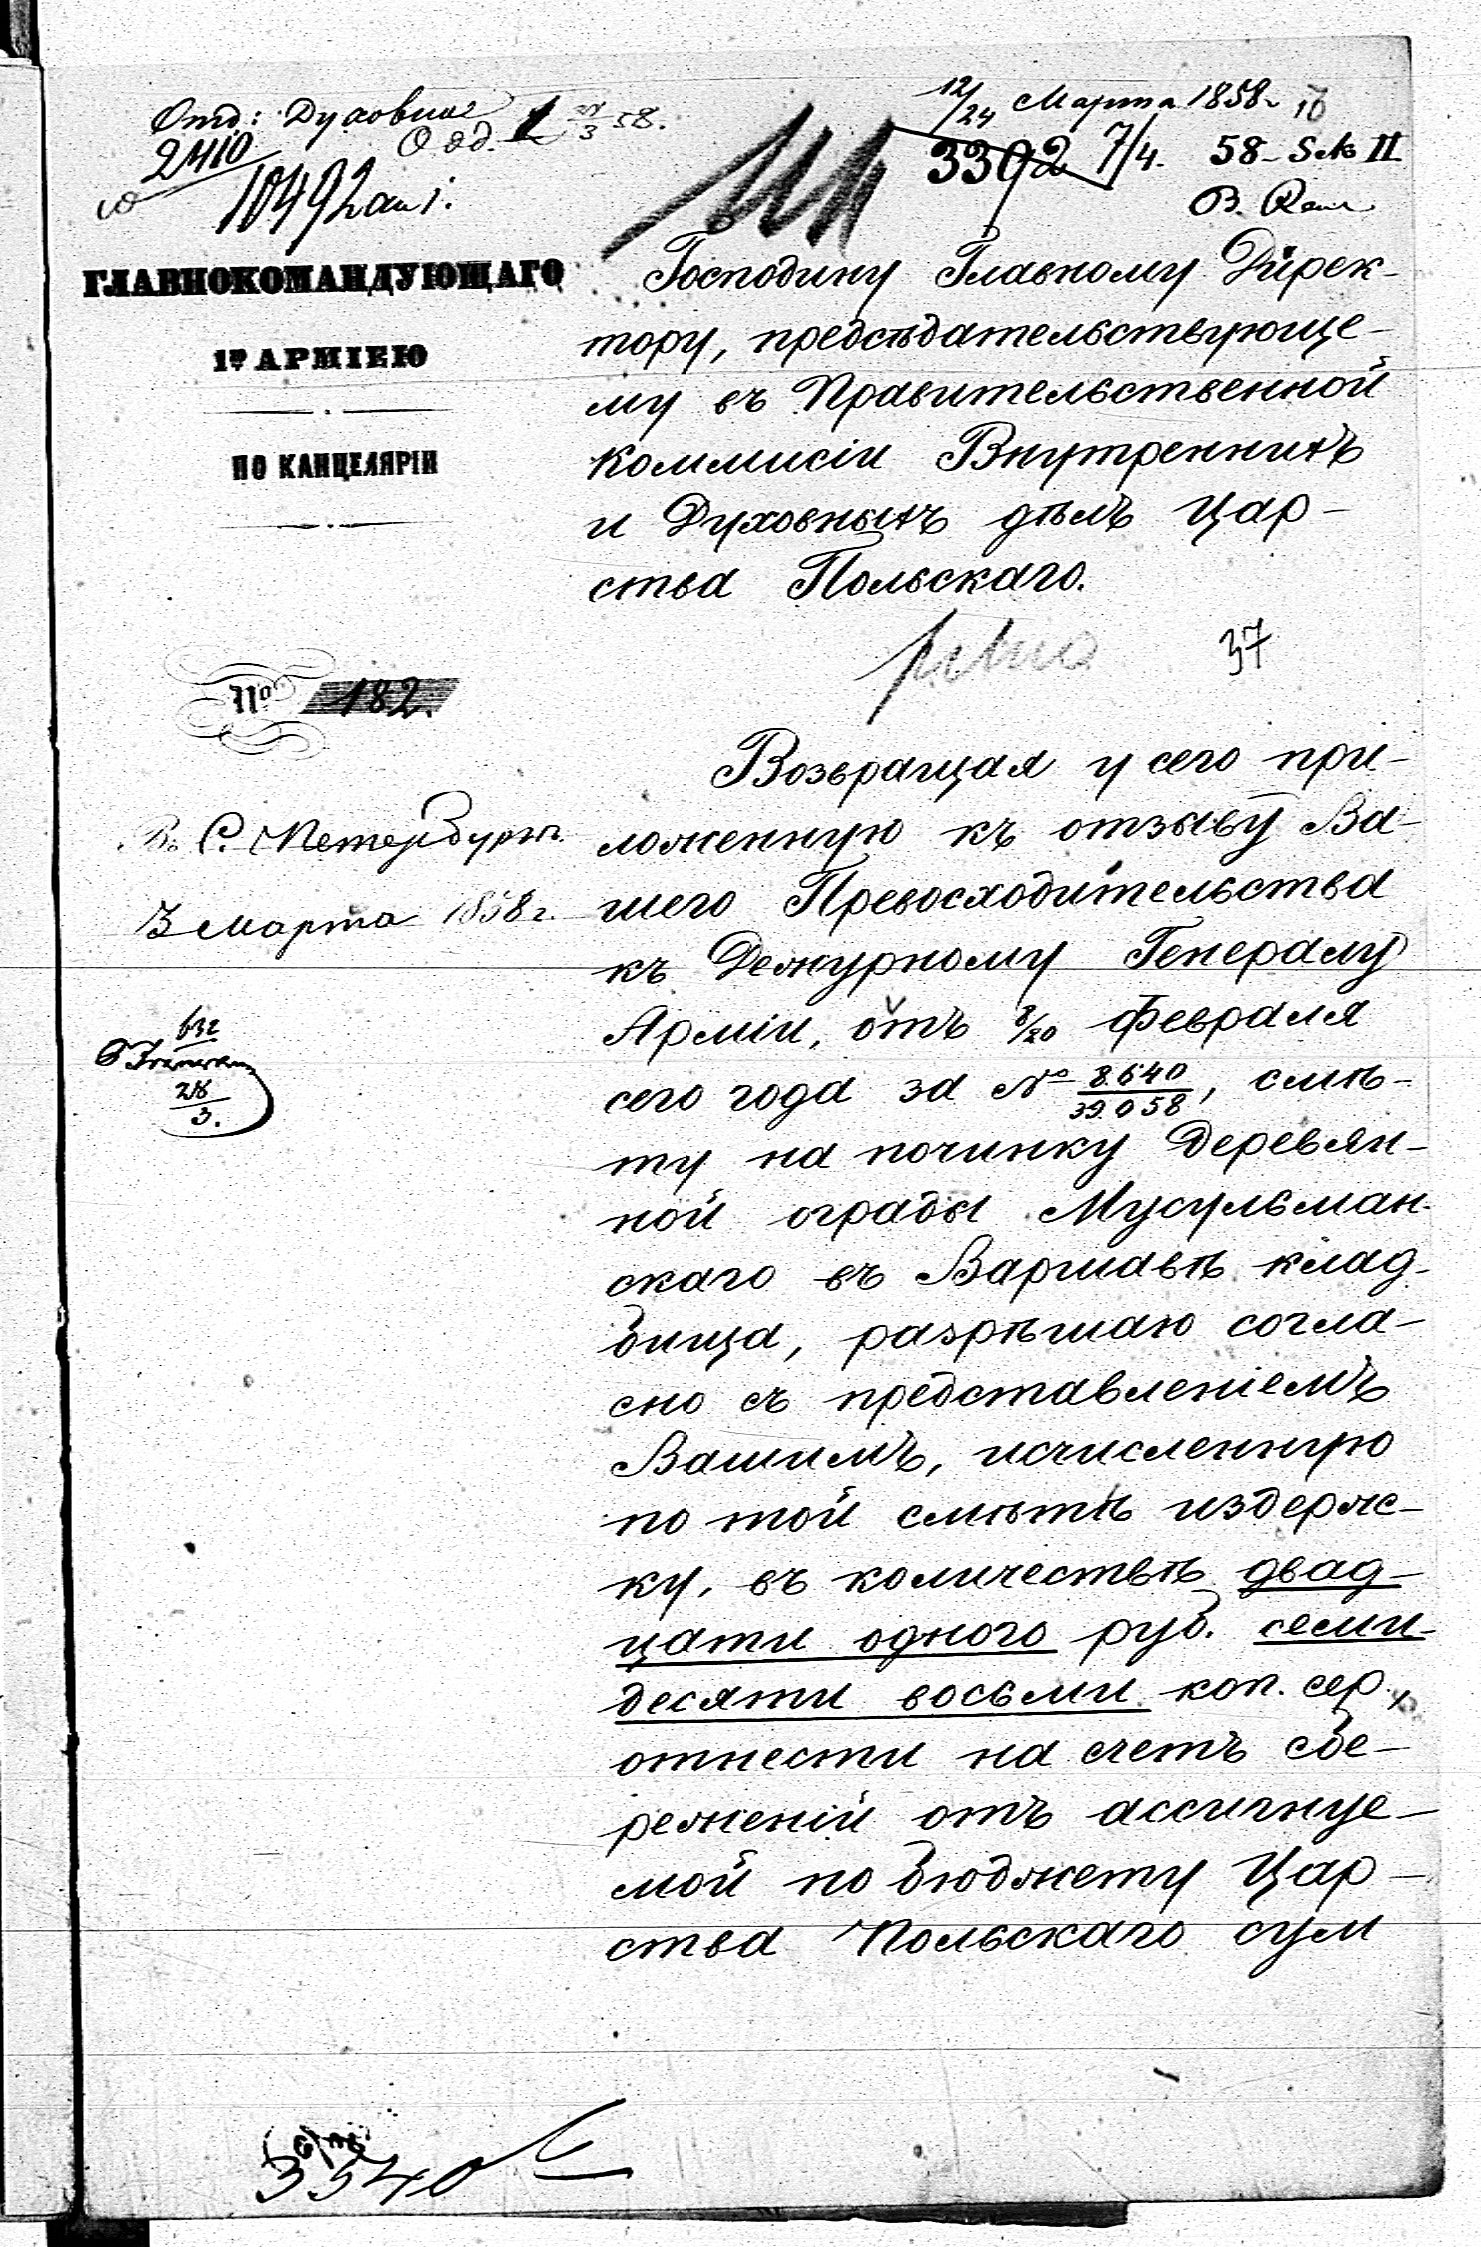 12/24 Марта 1858 г.
Отд: Духовное
2410
10492
3392 7/4. 58 II
ГЛАВНОКОМАНДУЮЩАГО
1ю АРМІЕЮ
ПО КАНЦЕЛЯРІИ
№ 182.
Въ С. Петербургѣ.
3 Марта 1858 г.
Господину Главному Дирек-
тору, предсѣдательствующе-
му въ Правительственной
Коммисіи Внутреннихъ
и Духовныхъ дѣлъ Цар-
ства Польскаго.
37
Возвращая у сего при-
ложенную къ отзыву Ва-
шего Превосходительства
къ Дежурному Генералу
Арміи, отъ 8/20 Февраля
сего года за № 8.640/39.058, смѣ-
ту на починку деревян-
ной ограды Мусульман-
скаго въ Варшавѣ клад-
бища, разрѣшаю согла-
сно съ представленіемъ
Вашимъ, исчисленную
по той смѣтѣ издерж-
ку, въ количествѣ двад-
цати одного руб. семи-
десяти восьми коп. сер.,
отнести на счетъ сбе-
реженій отъ ассигнуе-
мой по бюджету Цар-
ства Польскаго сум
3540